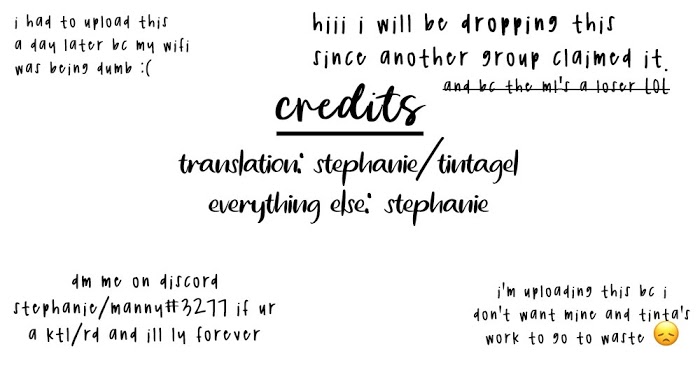 i had to upload this
a day later bc my wifi
was being dumb :(
hiii i will be dropping this
since another group claimed it.
and bc the ml's a loser LOL
credits
translation: stephanie/tintagel
everything else: stephanie
dm me on discord
stephanie/manny#3277 if ur
a ktl/rd and ill ly forever
i'm uploading this bc i
don't want mine and tinta's
work to go to waste 😞